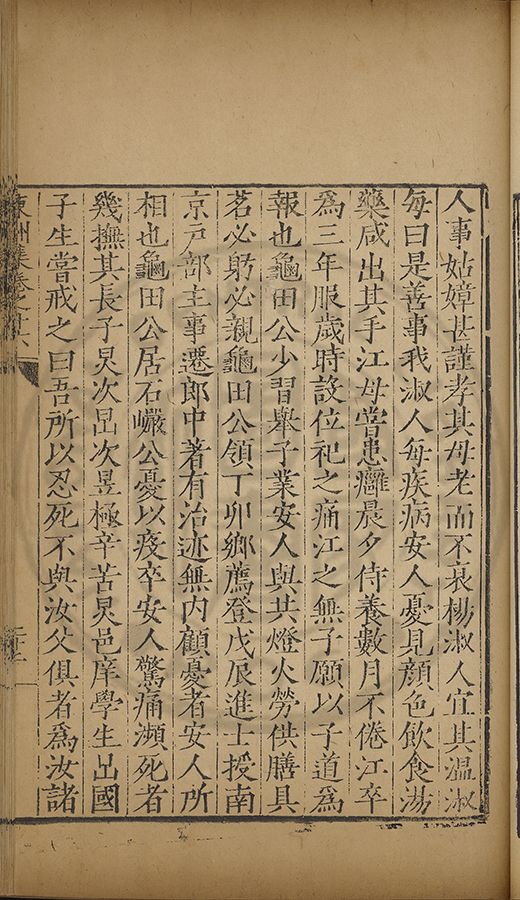 人事姑嫜甚謹孝其母老而不衰楊淑人宜其溫淑
每曰是善事我淑人每疾病安人憂見顏色飲食湯
藥咸出其手江母嘗患癰晨夕侍養數月不倦江卒
為三年服歲時設位祀之痛江之無子願以子道為
報也龜田公少習舉子業安人與共燈火勞供膳具
茗必躬必親龜田公領丁卯鄉薦登戊辰進士授南
京戶部主事遷郎中著有治迹無內顧憂者安人所
相也龜田公居石巗公憂以疫卒安人驚痛瀕死者
幾撫其長子炅次昆次昱極辛苦炅邑庠學生昆國
子生嘗戒之曰吾所以忍死不與汝父俱者為汝諸
東洲集卷之廿六